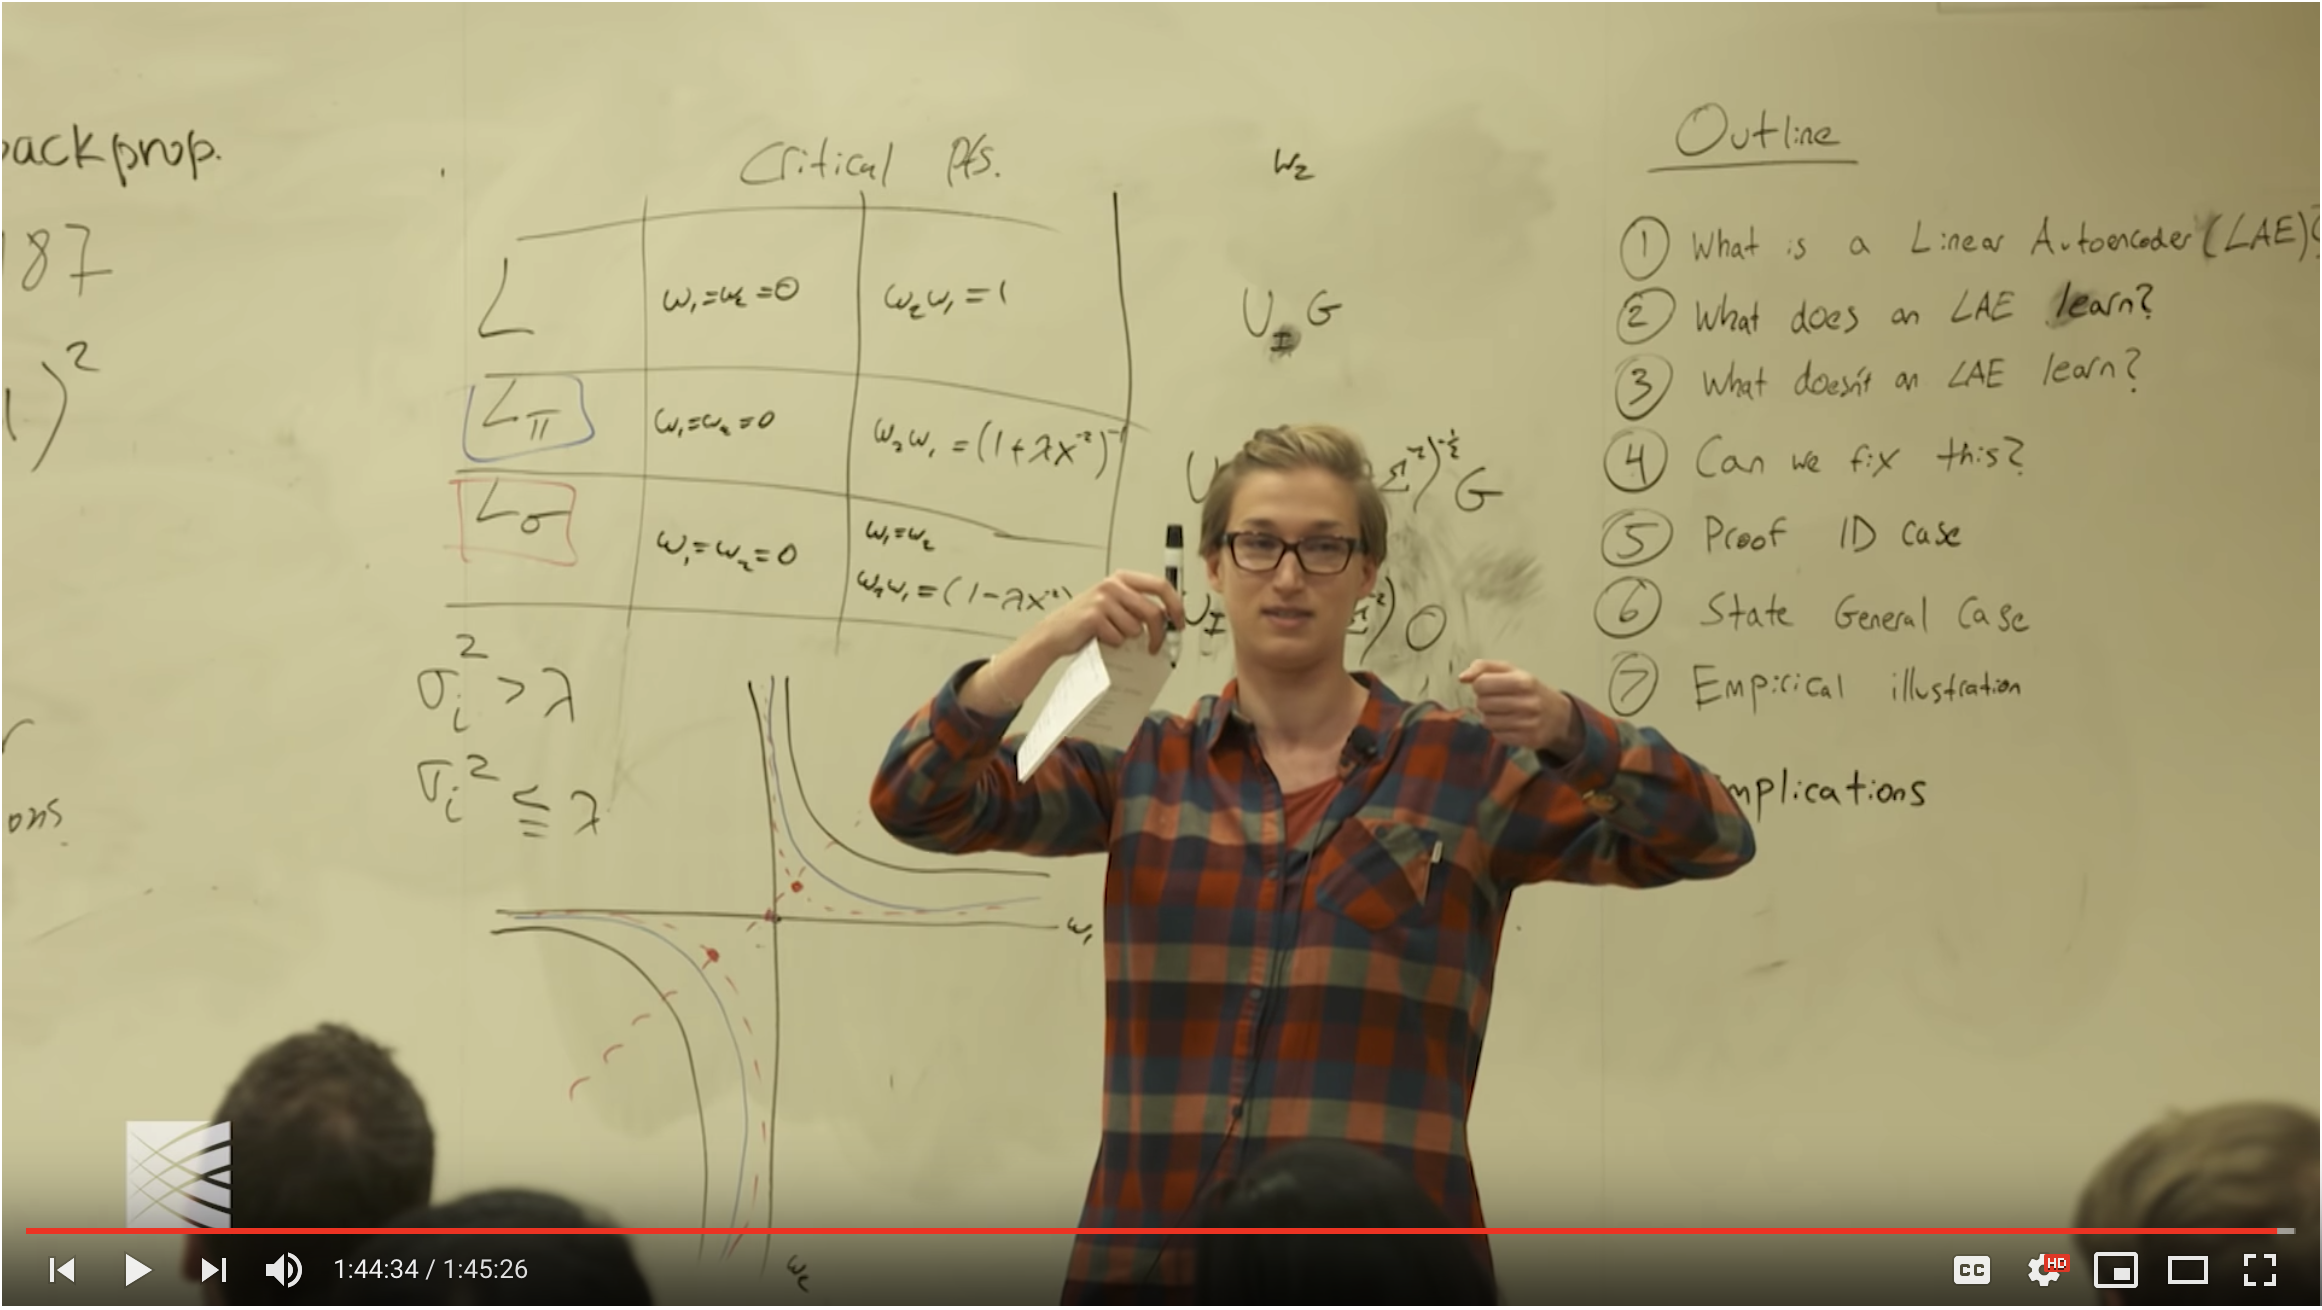 ackprop.
187
)²
ons
Critical Pts.
L
ω₁=ω₂=0
ω₂ω₁=1
L_π
ω₁=ω₂=0
ω₂ω₁=(1+λx⁻²)⁻¹
L_σ
ω₁=ω₂=0
ω₁=ω₂
ω₂ω₁=(1-λx⁻²)
σᵢ²>λ
σᵢ²≤λ
ω₁
ω₂
W₂
U_I G
U
Σ⁻²)^-½ G
U_I
Σ⁻²) O
Outline
① What is a Linear Autoencoder (LAE)?
② What does an LAE learn?
③ What doesn't an LAE learn?
④ Can we fix this?
⑤ Proof 1D case
⑥ State General Case
⑦ Empirical illustration
mplications
1:44:34 / 1:45:26
CC
HD